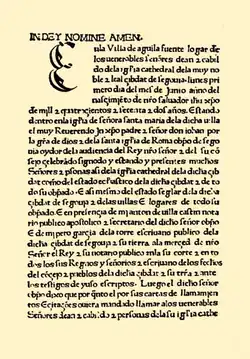 IN DEY NOMINE AMEN.
E nla Villa de aguila fuente logar de
los uenerables señores dean z cabil
do dela iglia cathedral dela muy no
ble z leal çibdat de segouia. lunes pri
mero dia del mes de Junio anno del
nasçimjeto de nro saluador ihu xpo
de mill z quatroçientos z setenta z dos años. Estando
dentro enla iglia de señora santa maria dela dicha uilla
el muy Reuerendo Jn xpo padre z señor don iohan por
la gra de dios z dela santa iglia de Roma obpo de sego
uia oydor dela audiençia del Rey nro señor z del su co
sejo çelebrado signodo y estando y presentes muchos
Señores z psonas asi dela iglia cathedral dela dicha çib
dat como del estado eclesiastico dela dicha çibdat z de to
do su obpado. E asi mesmo del estado seglar dela dicha
çibdat de segouia z delas uillas E logares de todo su
obpado. E en presençia de mj anton de uillacastin nota
rio publico apostolico z secretario del dicho señor obpo
E de mjpero garçia dela torre escriuano publico dela
dicha çibdat de segouia z su tierra ala merçed de nro
Señor el Rey z su notario publico enla su corte z en to
dos los sus Regnos y señorios z escriuano delos fechos
del conçejo z pueblos dela dicha çibdat z su trra z ante
los testigos de yuso escriptos. Luego el dicho señor
obpo dixo que por quanto el por sus cartas de llamamjen
tos E çitaçiones ouiera mandado llamar alos uenerables
Señores dean z cabildo z personas dela su iglia cathe